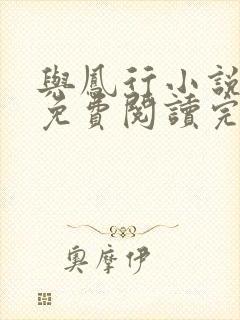 與鳳行小說
免費閱讀完
奧摩伊